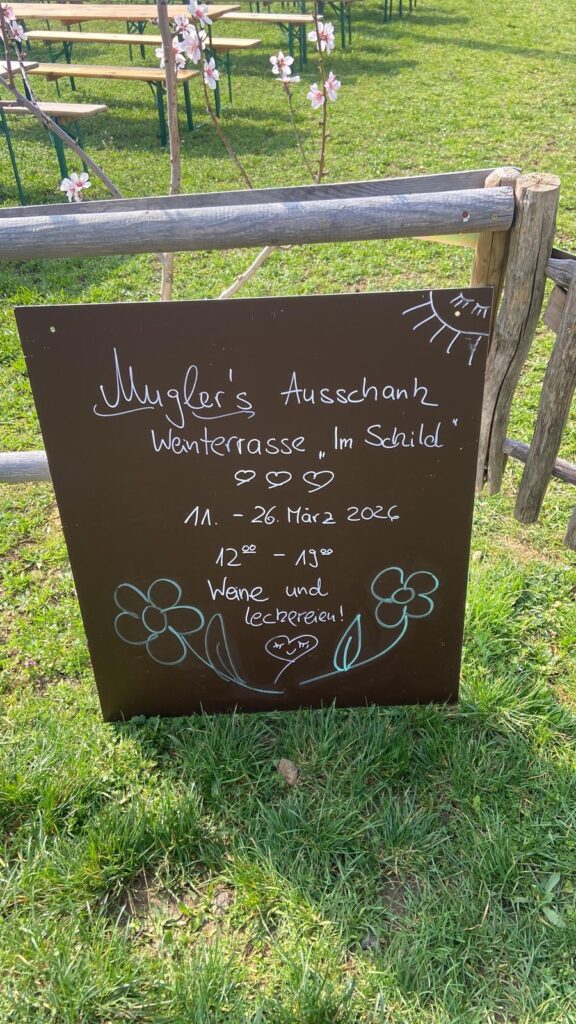 Mugler's Ausschank
Weinterrasse „Im Schild"
11. - 26. März 2026
12⁰⁰ - 19⁰⁰
Weine und
leckereien!